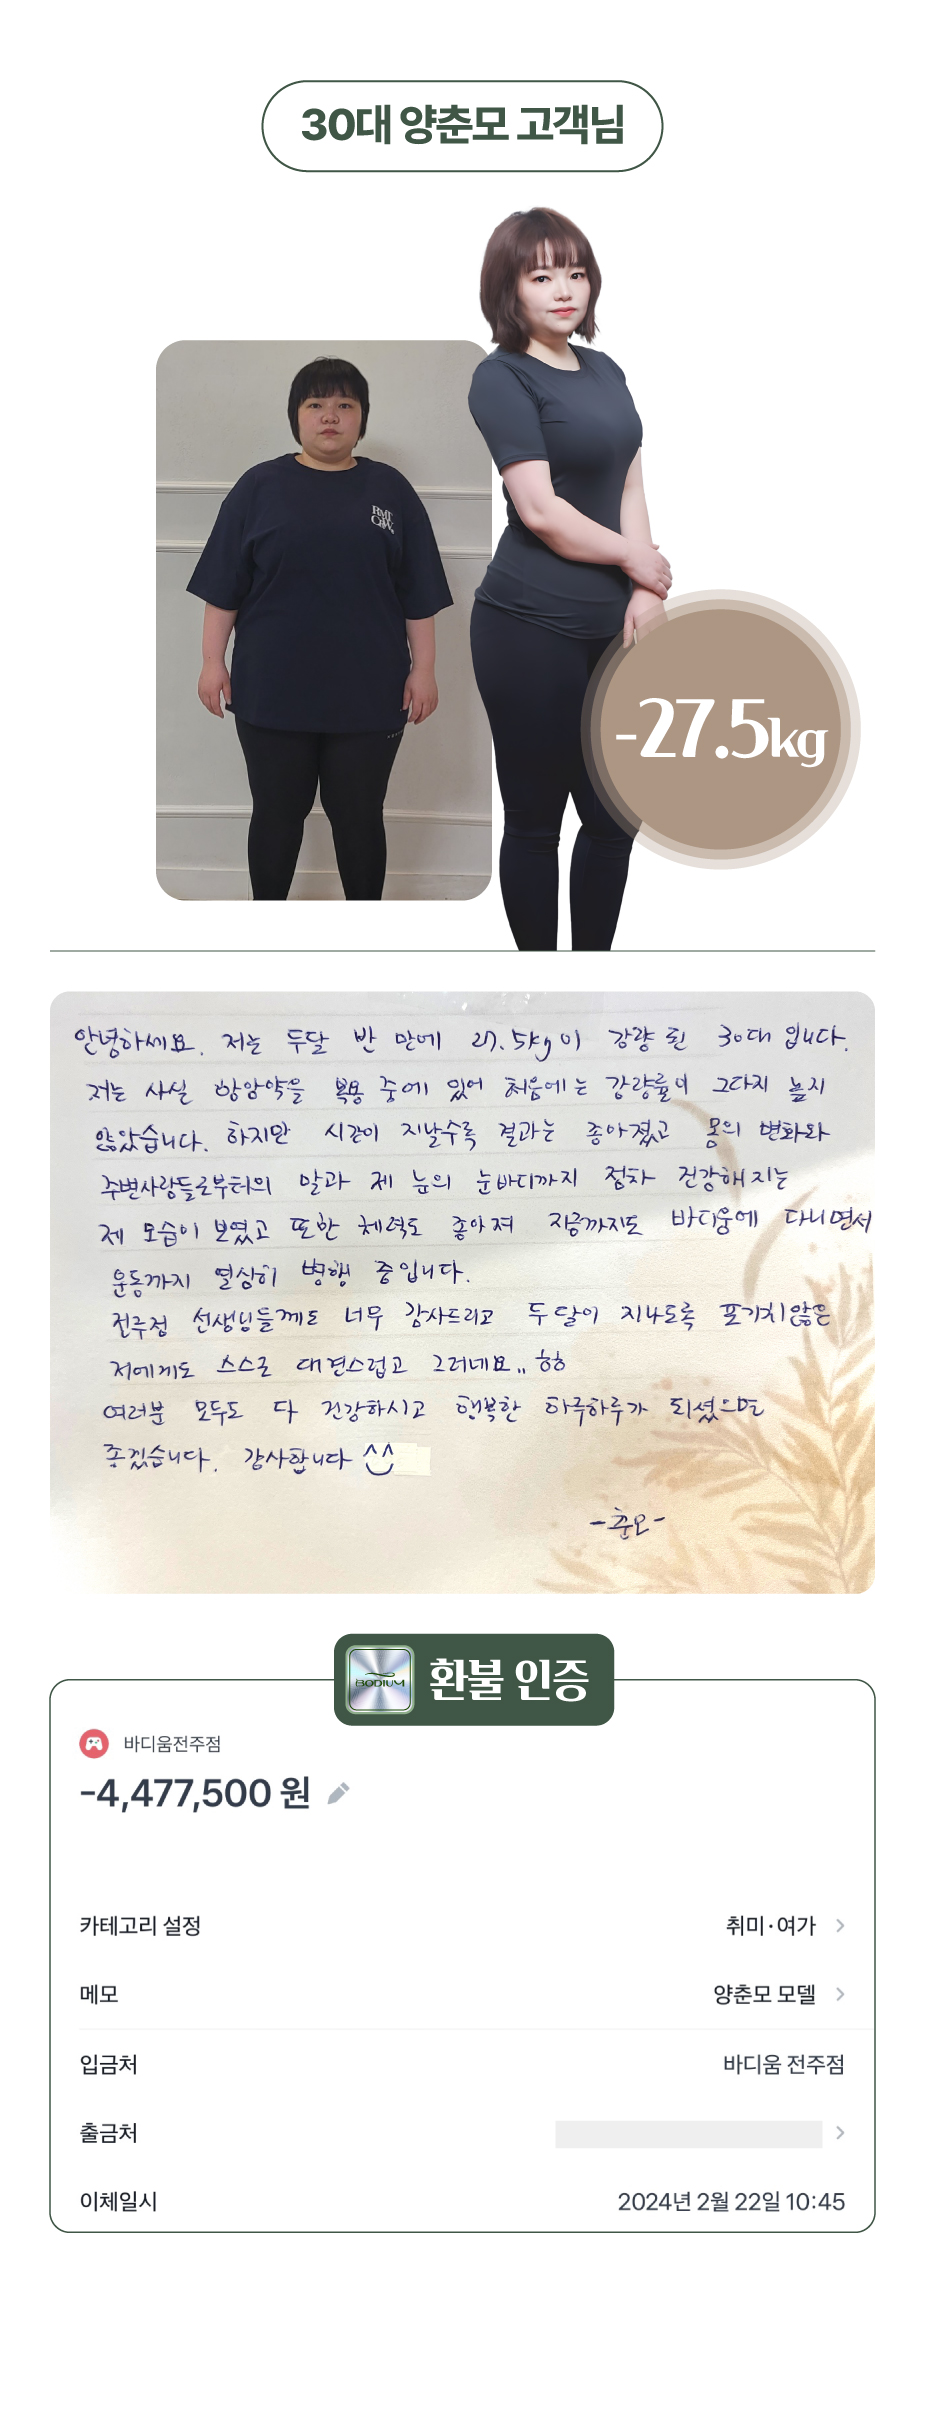 30대 양춘모 고객님
RMT
CREW.
-27.5kg
안녕하세요. 저는 두달 반 만에 27.5kg이 감량 된 30대 입니다.
저는 사실 항암약을 복용 중에 있어 처음에는 감량률이 그다지 높지
않았습니다. 하지만 시간이 지날수록 결과는 좋아졌고 몸의 변화와
주변사람들로부터의 말과 제 눈의 눈바디까지 점차 건강해지는
제 모습이 보였고 또한 체력도 좋아져 지금까지도 바디움에 다니면서
운동까지 열심히 병행 중입니다.
전주점 선생님들께도 너무 감사드리고 두달이 지나도록 포기치않은
저에게도 스스로 대견스럽고 그러네요.. ㅎㅎ
여러분 모두도 다 건강하시고 행복한 하루하루가 되셨으면
좋겠습니다. 감사합니다 ^^
-춘모-
BODIUM 환불 인증
바디움전주점
-4,477,500 원
카테고리 설정 취미·여가
메모 양춘모 모델
입금처 바디움 전주점
출금처
이체일시 2024년 2월 22일 10:45